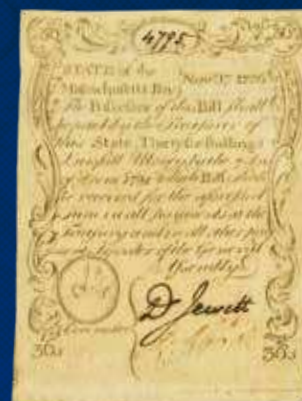 4795
STATE of the
Massachusetts Bay Novr. 17 1776
The Possessor of this Bill shall
be paid by the Treasurer of
this State, Thirty six Shillings
Lawfull Money by the
of 1791 which Bill shall
be received for the aforesaid
sum in all payments at the
Treasury and in all other
by order of the General
Assembly
Committee
D Jewett
36s 36s